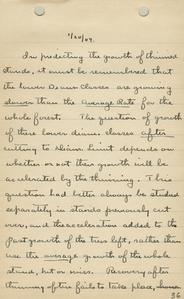 1/20/09.
In predicting the growth of thinned
stands, it must be remembered that
the lower Diam Classes are growing
slower than the Average Rate for the
whole forest. The question of growth
of these lower diam. classes after
cutting to Diam Limit depends on
whether or not their growth will be
accelerated by the thinning. This
question had better always be studied
separately in stands previously cut
over, and the acceleration added to the
past growth of the trees left, rather than
use the average growth of the whole
stand, but or vice. Recovery after
thinning often fails to take place,
36